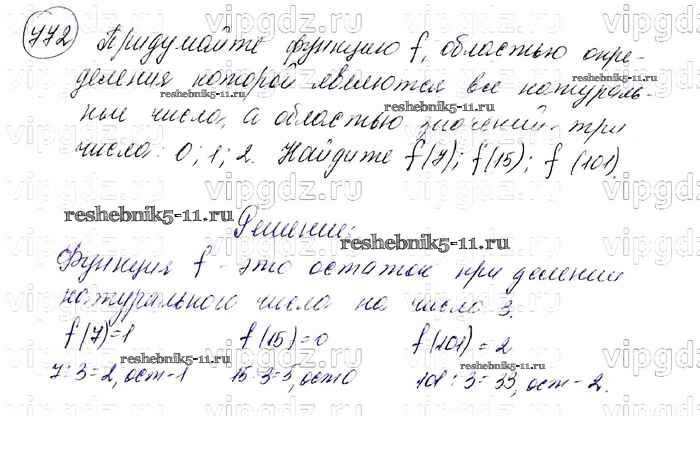 772 Придумайте функцию f, областью опре-
деления которой являются все натураль-
ные числа, а областью значений - три
числа: 0; 1; 2. Найдите f(7); f(15); f(101).
Решение:
Функция f - это остаток при делении
натурального числа на число 3.
f(7)=1 f(15)=0 f(101)=2
7:3=2, ост-1 15:3=5, ост 0 101:3=33, ост-2.
vipgdz.ru
reshebnik5-11.ru